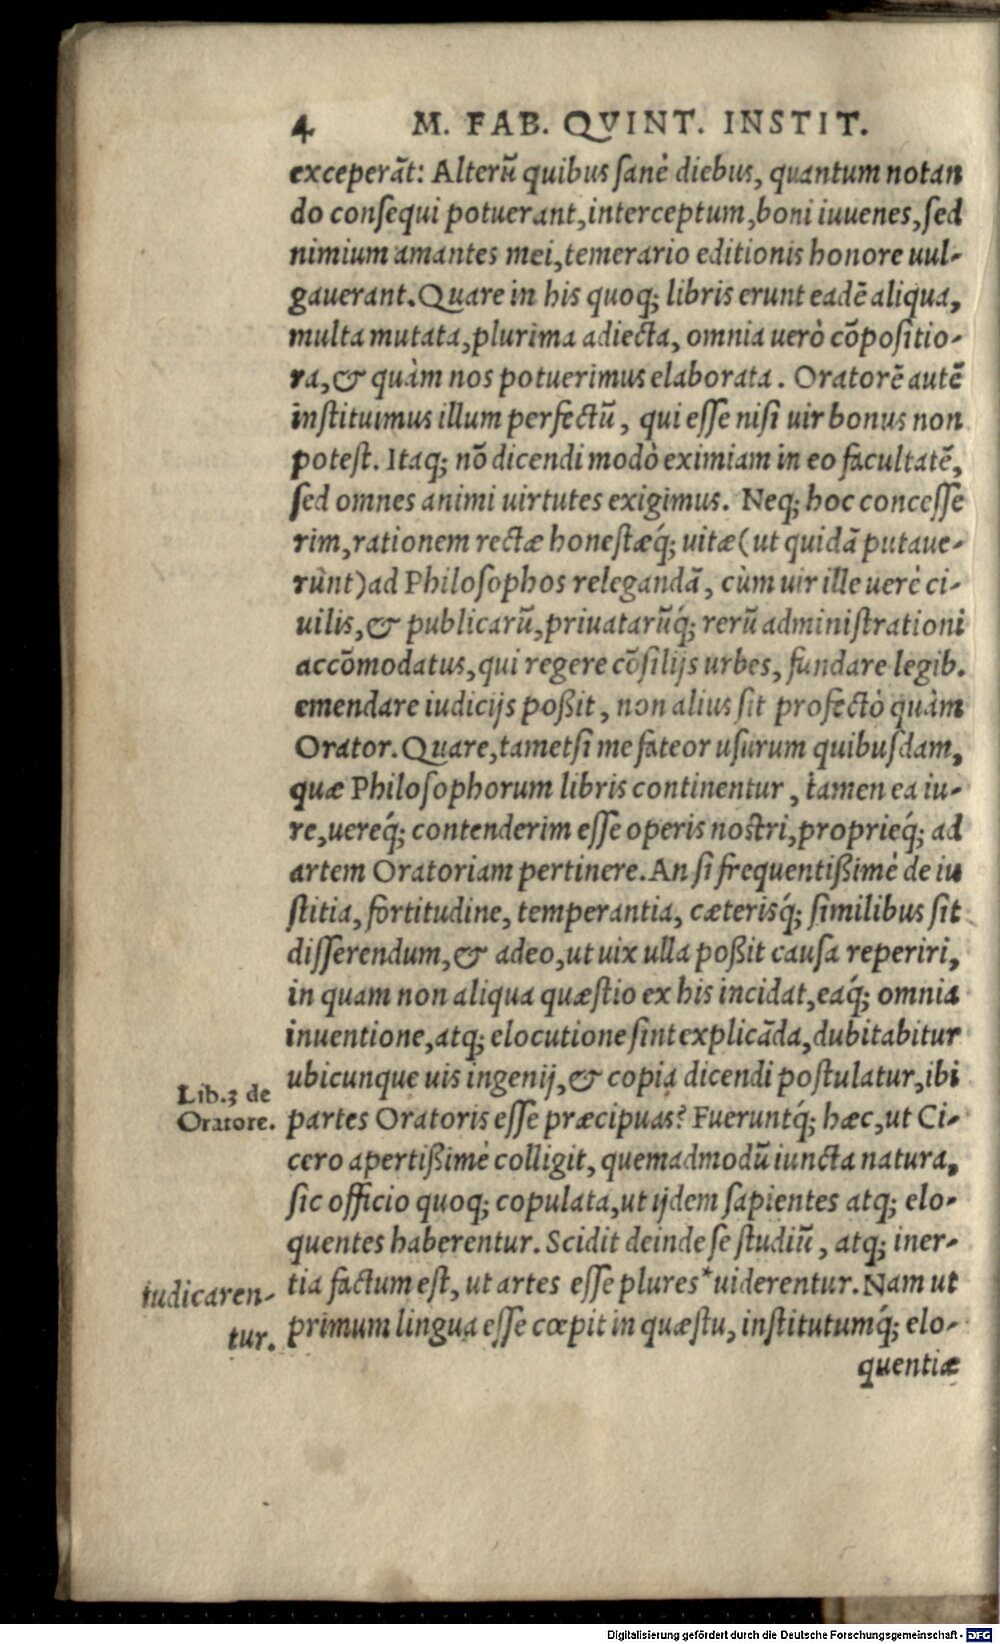 4 M. FAB. QVINT. INSTIT.
exceperãt: Alterũ quibus ſanè diebus, quantum notan
do conſequi potuerant, interceptum, boni iuuenes, ſed
nimium amantes mei, temerario editionis honore uul-
gauerant. Quare in his quoq; libris erunt eadẽ aliqua,
multa mutata, plurima adiecta, omnia uerò cõpoſitio-
ra, & quàm nos potuerimus elaborata. Oratorẽ autẽ
inſtituimus illum perfectũ, qui eſſe niſi uir bonus non
poteſt. Itaq; nõ dicendi modò eximiam in eo facultatẽ,
ſed omnes animi uirtutes exigimus. Neq; hoc conceſſe
rim, rationem rectæ honeſtæq́; uitæ (ut quidã putaue-
rùnt) ad Philoſophos relegandã, cùm uir ille uerè ci-
uilis, & publicarũ, priuatarũq́; rerũ adminiſtrationi
accõmodatus, qui regere cõſilijs urbes, fundare legib.
emendare iudicijs poßit, non alius ſit profectò quàm
Orator. Quare, tametſi me fateor uſurum quibuſdam,
quæ Philoſophorum libris continentur, tamen ea iu-
re, uereq́; contenderim eſſe operis noſtri, proprieq́; ad
artem Oratoriam pertinere. An ſi frequentißimè de iu
ſtitia, fortitudine, temperantia, cæterisq́; ſimilibus ſit
diſſerendum, & adeo, ut uix ulla poßit cauſa reperiri,
in quam non aliqua quæſtio ex his incidat, eaq́; omnia
inuentione, atq; elocutione ſint explicãda, dubitabitur
ubicunque uis ingenij, & copia dicendi poſtulatur, ibi
Lib.3 de
Oratore.
partes Oratoris eſſe præcipuas? Fueruntq́; hæc, ut Ci-
cero apertißimè colligit, quemadmodũ iuncta natura,
ſic officio quoq; copulata, ut ijdem ſapientes atq; elo-
quentes haberentur. Scidit deinde ſe ſtudiũ, atq; iner-
tia factum eſt, ut artes eſſe plures* uiderentur. Nam ut
iudicaren-
tur.
primum lingua eſſe cœpit in quæſtu, inſtitutumq́; elo-
quentiæ
Digitalisierung gefördert durch die Deutsche Forschungsgemeinschaft - DFG